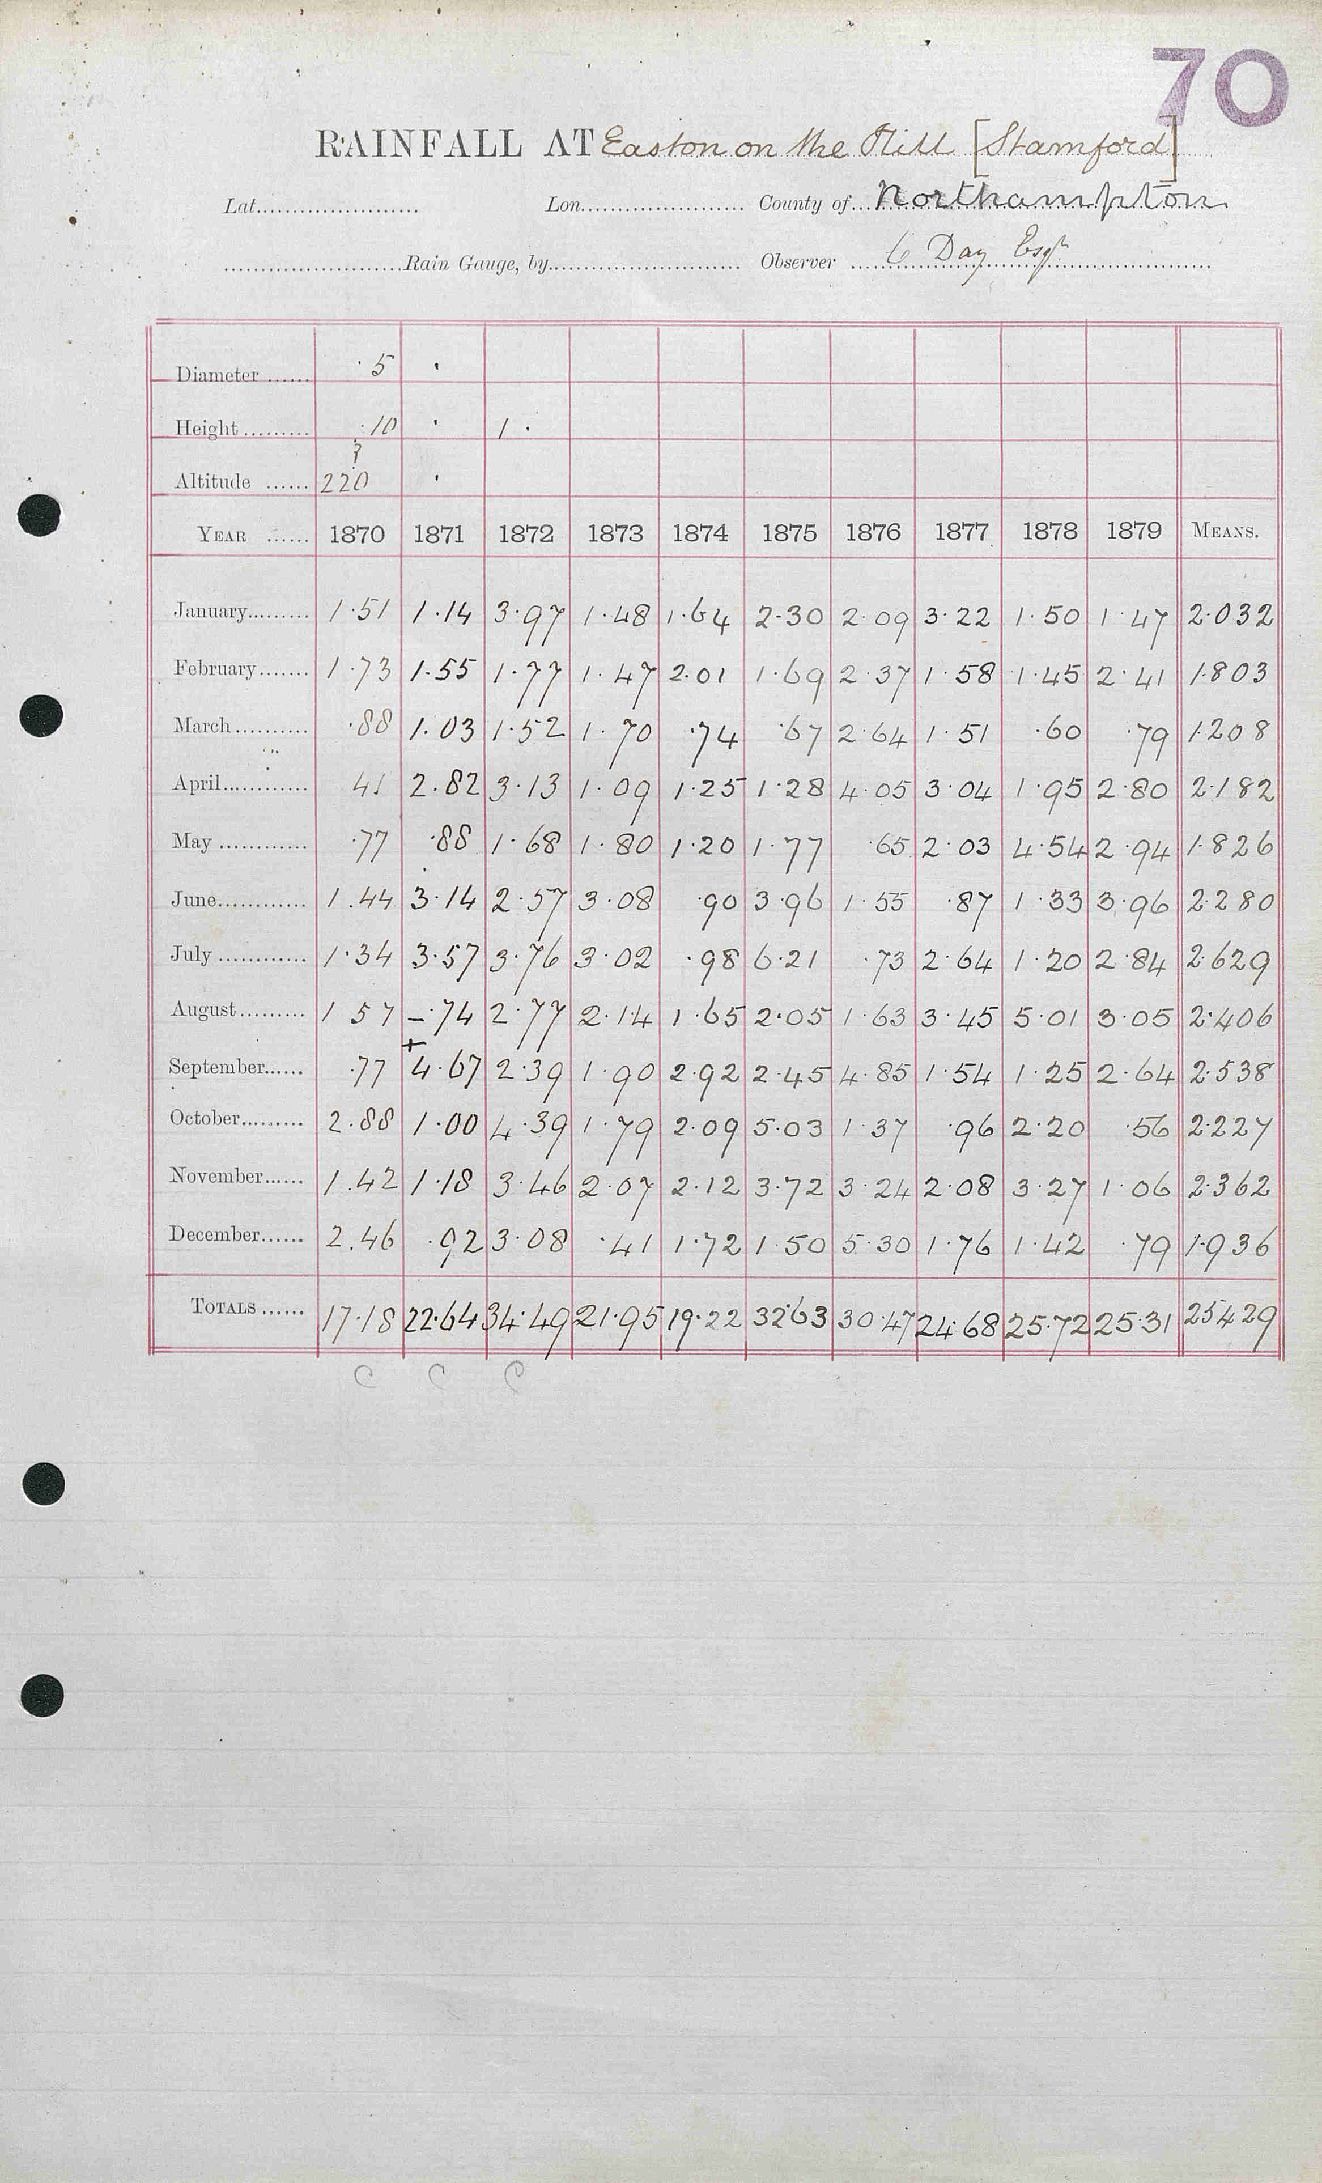 70
RAINFALL AT Easton on the Hill [Stamford]
Lat. Lon. County of Northampton
Rain Gauge, by Observer C Day Esqr
Diameter 5 ·
Height ·10 · 1 ·
?
Altitude 220 ·
YEAR 1870 1871 1872 1873 1874 1875 1876 1877 1878 1879 MEANS.
January 1·51 1·14 3·97 1·48 1·64 2·30 2·09 3·22 1·50 1·47 2·032
February 1·73 1·55 1·77 1·47 2·01 1·69 2·37 1·58 1·45 2·41 1·803
March ·88 1·03 1·52 1·70 ·74 ·67 2·64 1·51 ·60 ·79 1·208
April 41 2·82 3·13 1·09 1·25 1·28 4·05 3·04 1·95 2·80 2·182
May ·77 ·88 1·68 1·80 1·20 1·77 ·65 2·03 4·54 2·94 1·826
June 1·44 3·14 2·57 3·08 ·90 3·96 1·55 ·87 1·33 3·96 2·280
July 1·34 3·57 3·76 3·02 ·98 6·21 ·73 2·64 1·20 2·84 2·629
August 1 57 –·74 2·77 2·14 1·65 2·05 1·63 3·45 5·01 3·05 2·406
September ·77 +4·67 2·39 1·90 2·92 2·45 4·85 1·54 1·25 2·64 2·538
October 2·88 1·00 4·39 1·79 2·09 5·03 1·37 ·96 2·20 ·56 2·227
November 1·42 1·18 3·46 2·07 2·12 3·72 3·24 2·08 3·27 1·06 2·362
December 2·46 ·92 3·08 ·41 1·72 1·50 5·30 1·76 1·42 ·79 1·936
TOTALS 17·18 22·64 34·49 21·95 19·22 32·63 30·47 24·68 25·72 25·31 25429
C C C